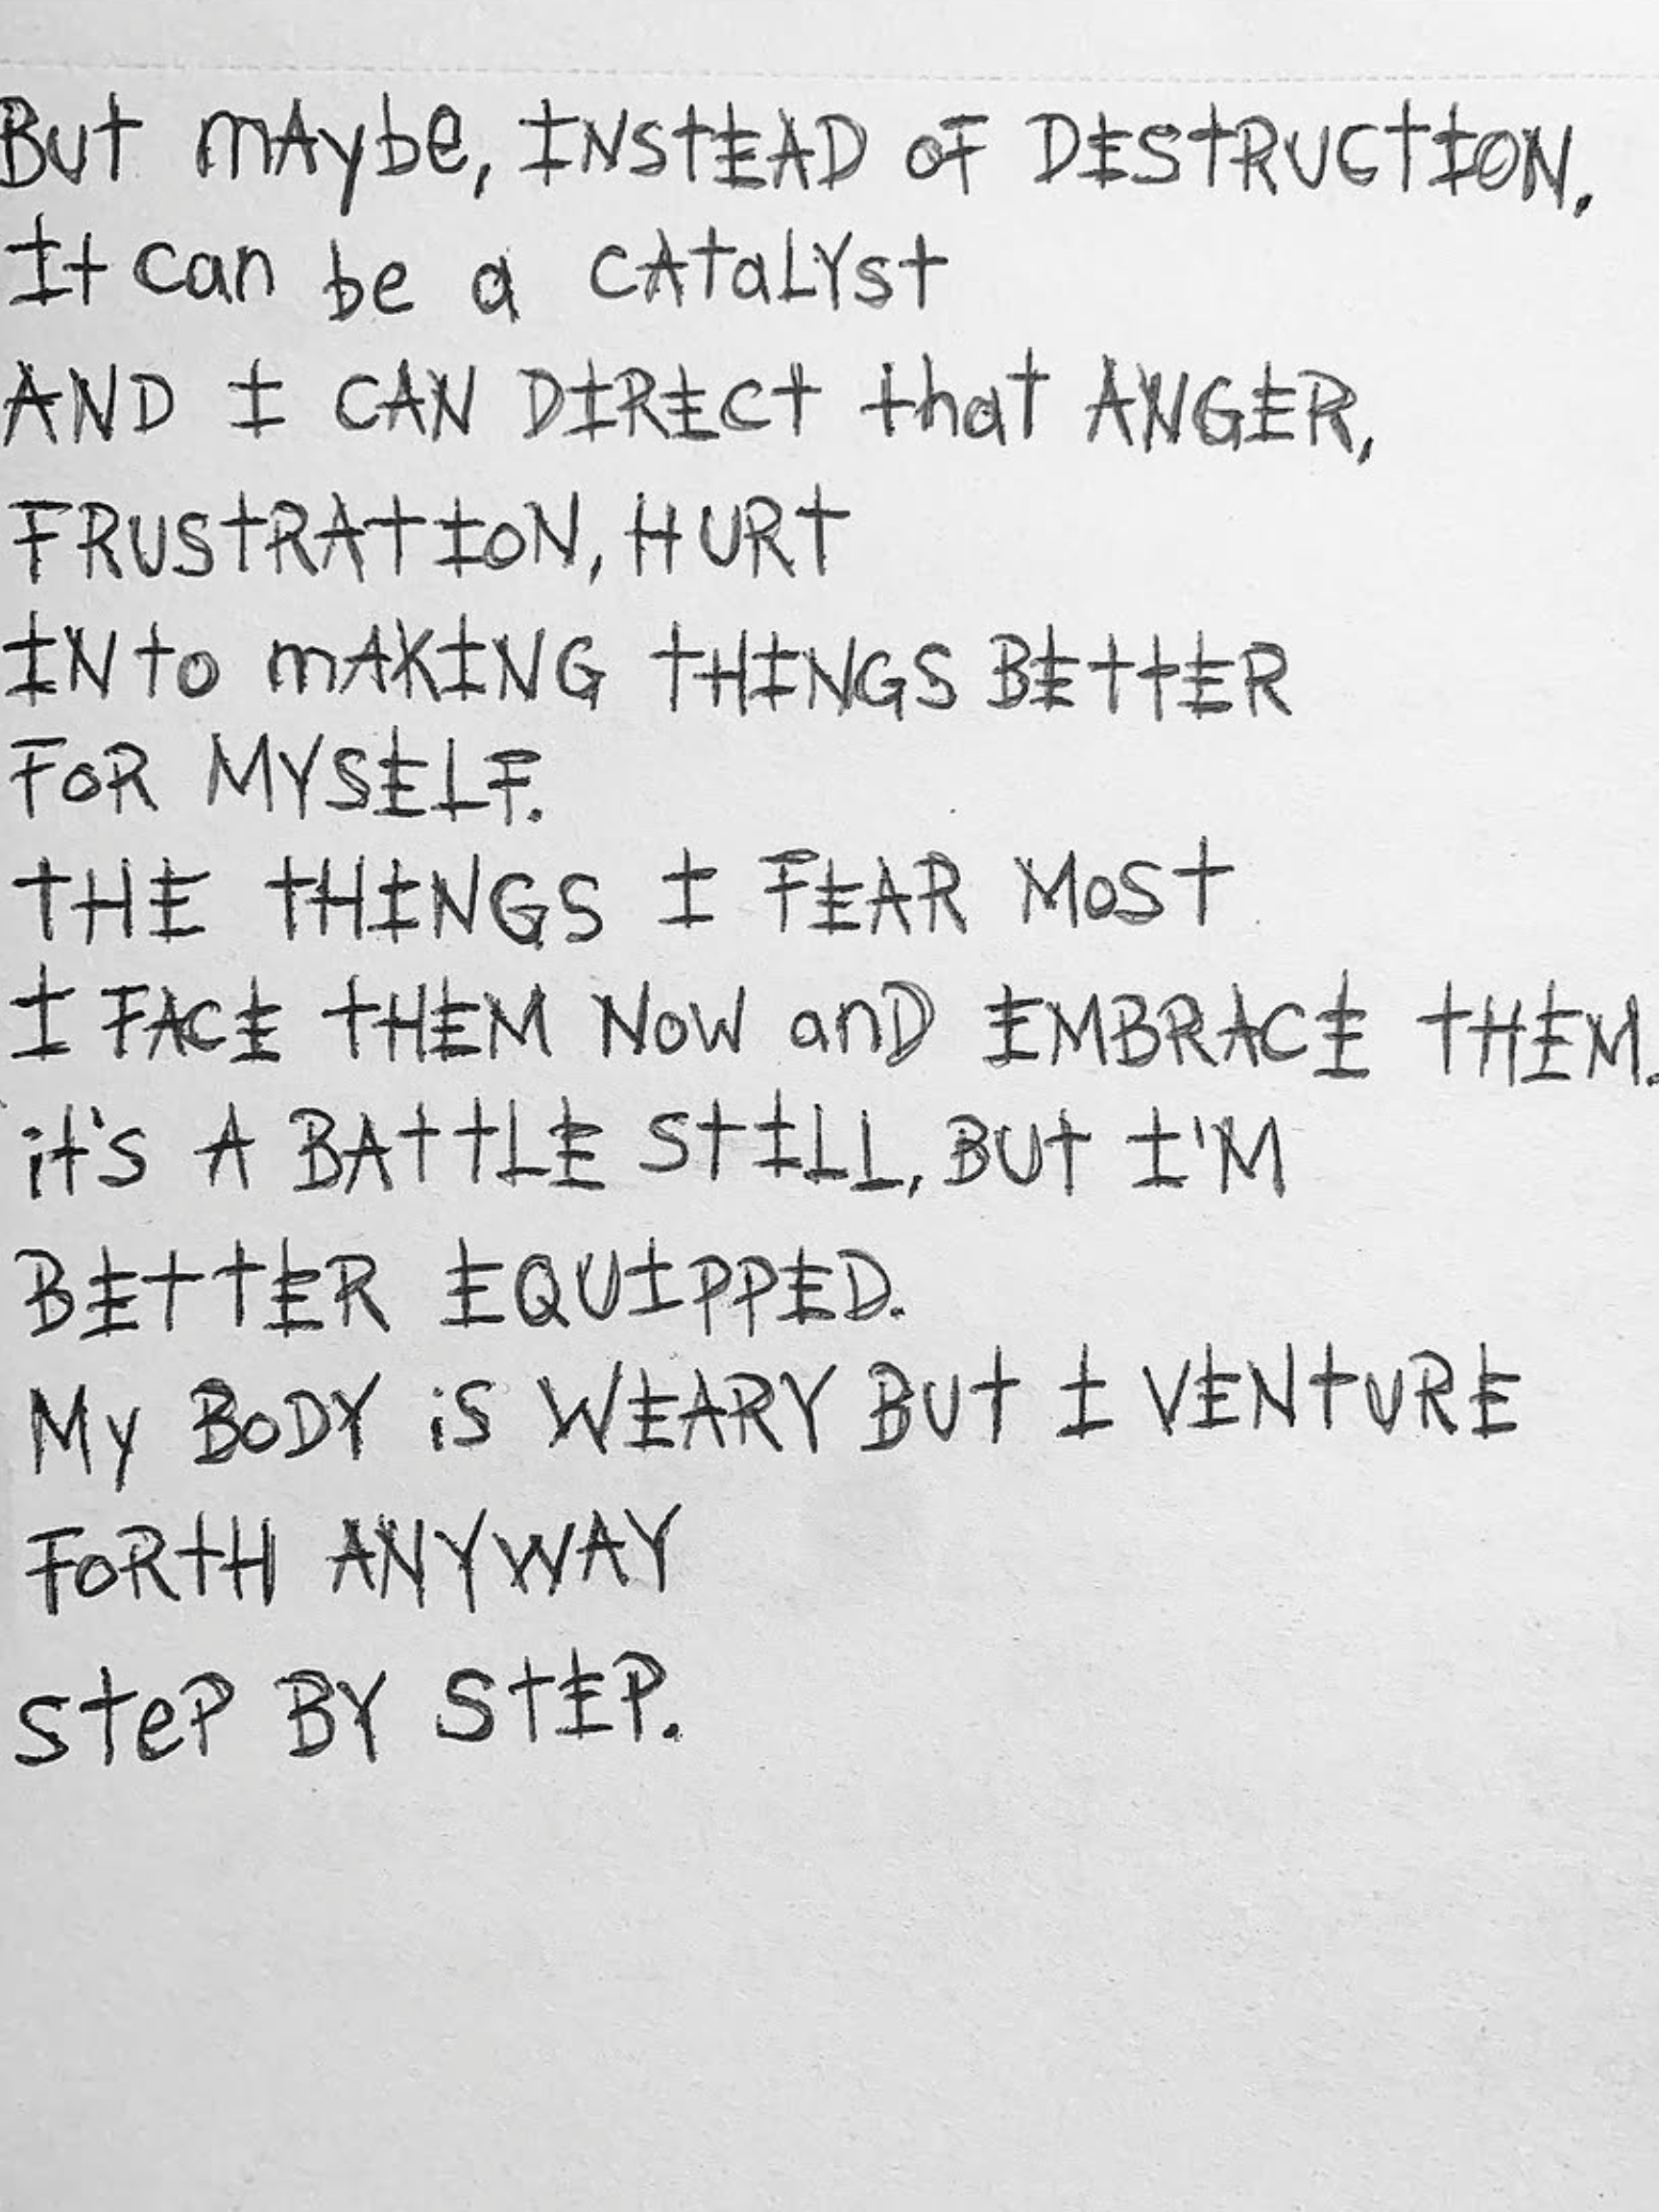 But mAybe, INStEAD oF DEStRUCtION,
It can be a CAtaLYst
AND I CAN DIRECt that ANGER,
FRUStRAtION, HURt
INto mAKING tHINGS BEttER
FoR MYSELF.
tHE tHINGS I FEAR MoSt
I FACE tHEM NoW anD EMBRACE tHEM.
it's A BAttLE StILL, BUt I'M
BEttER EQUIPPED.
My BoDY iS WEARY BUt I VENtURE
FoRtH ANYWAY
SteP BY StEP.